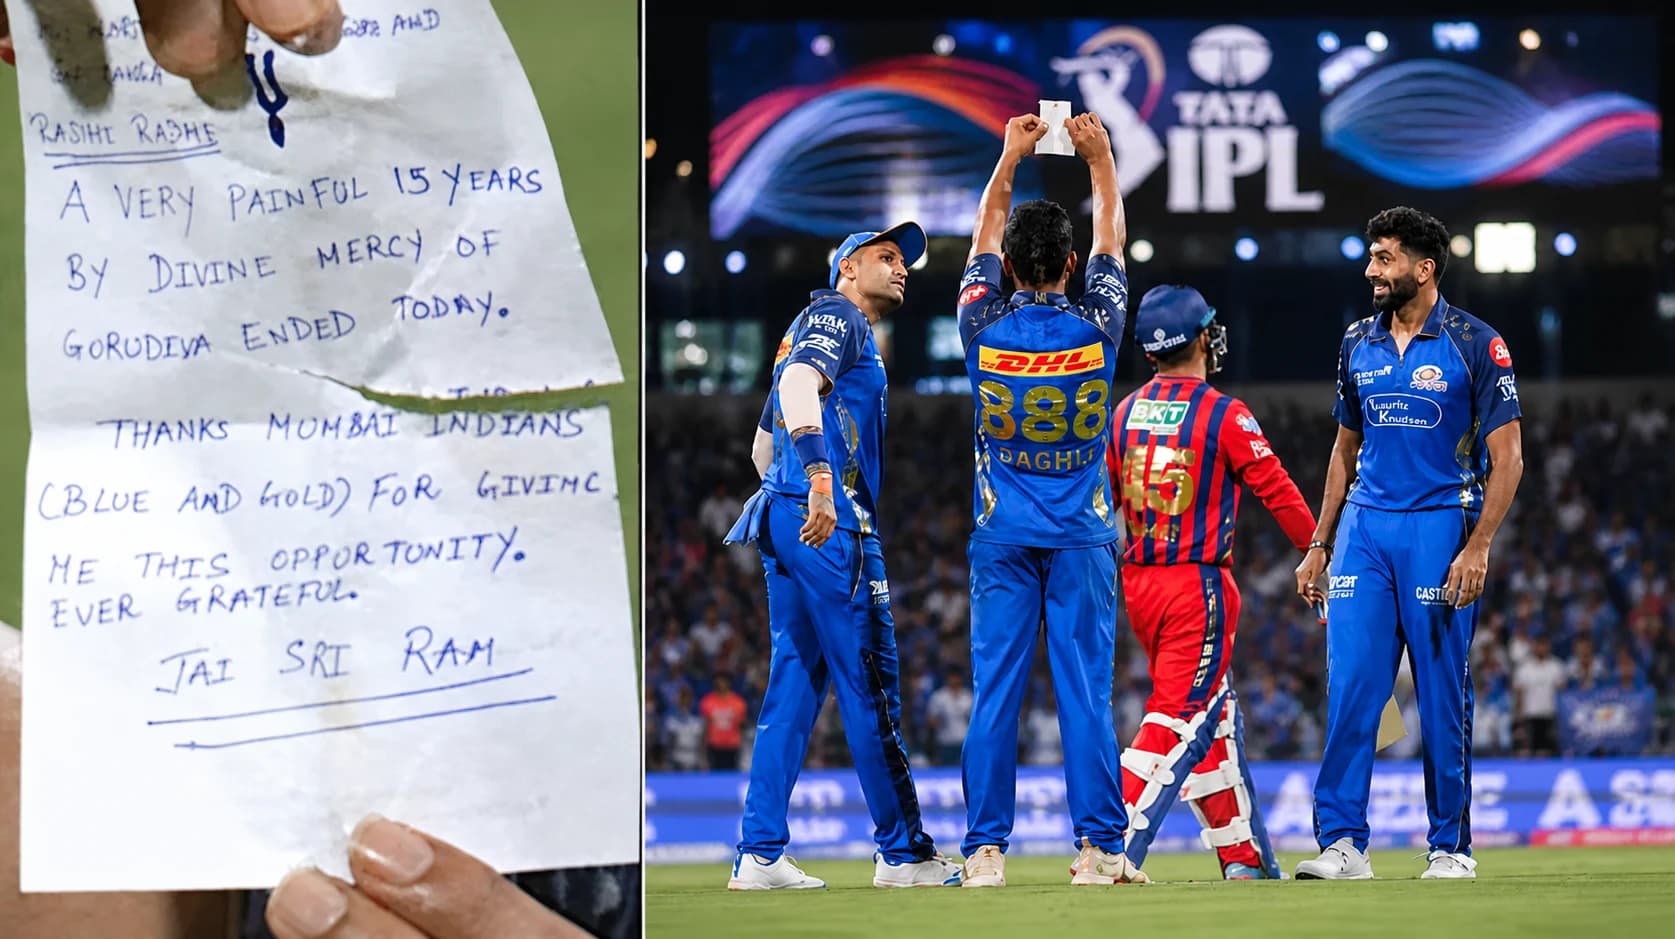 AND
RADHE
A VERY PAINFUL 15 YEARS
BY DIVINE MERCY OF
GORUDIVA ENDED TODAY.
THANKS MUMBAI INDIANS
(BLUE AND GOLD) FOR GIVIMC
ME THIS OPPORTUNITY.
EVER GRATEFUL.
JAI SRI RAM
TATA
IPL
DHL
888
DAGHIJ
BKT
45
Knudsen
CASTL